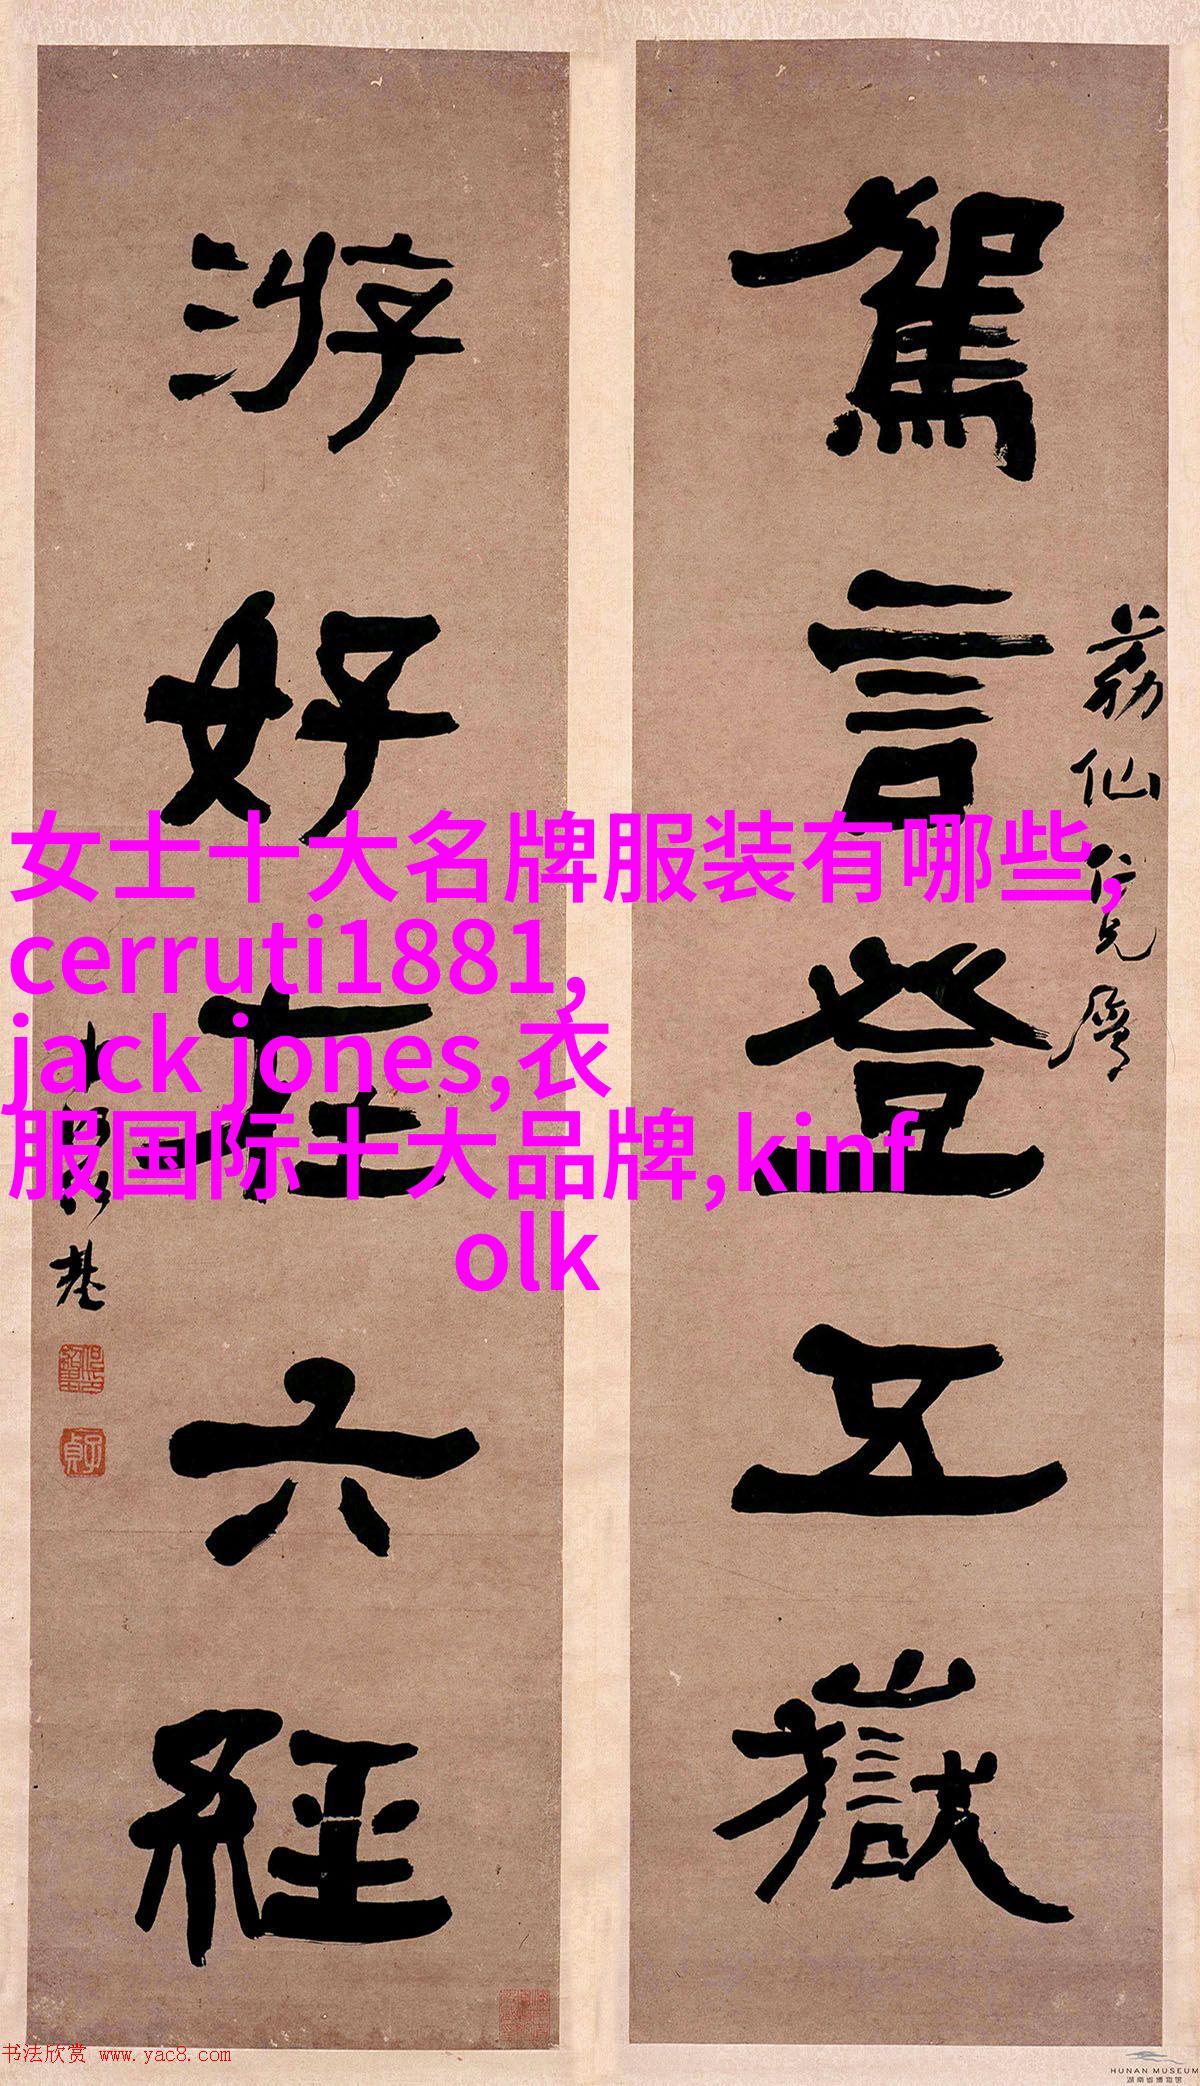 駕言登五嶽
荔仙仁兄屬
游好在六經
何紹基
子貞
女士十大名牌服装有哪些,
cerruti1881,
jack jones,衣
服国际十大品牌,kinf
olk
书法欣赏 www.yac8.com
HUNAN MUSEUM
湖南省博物馆